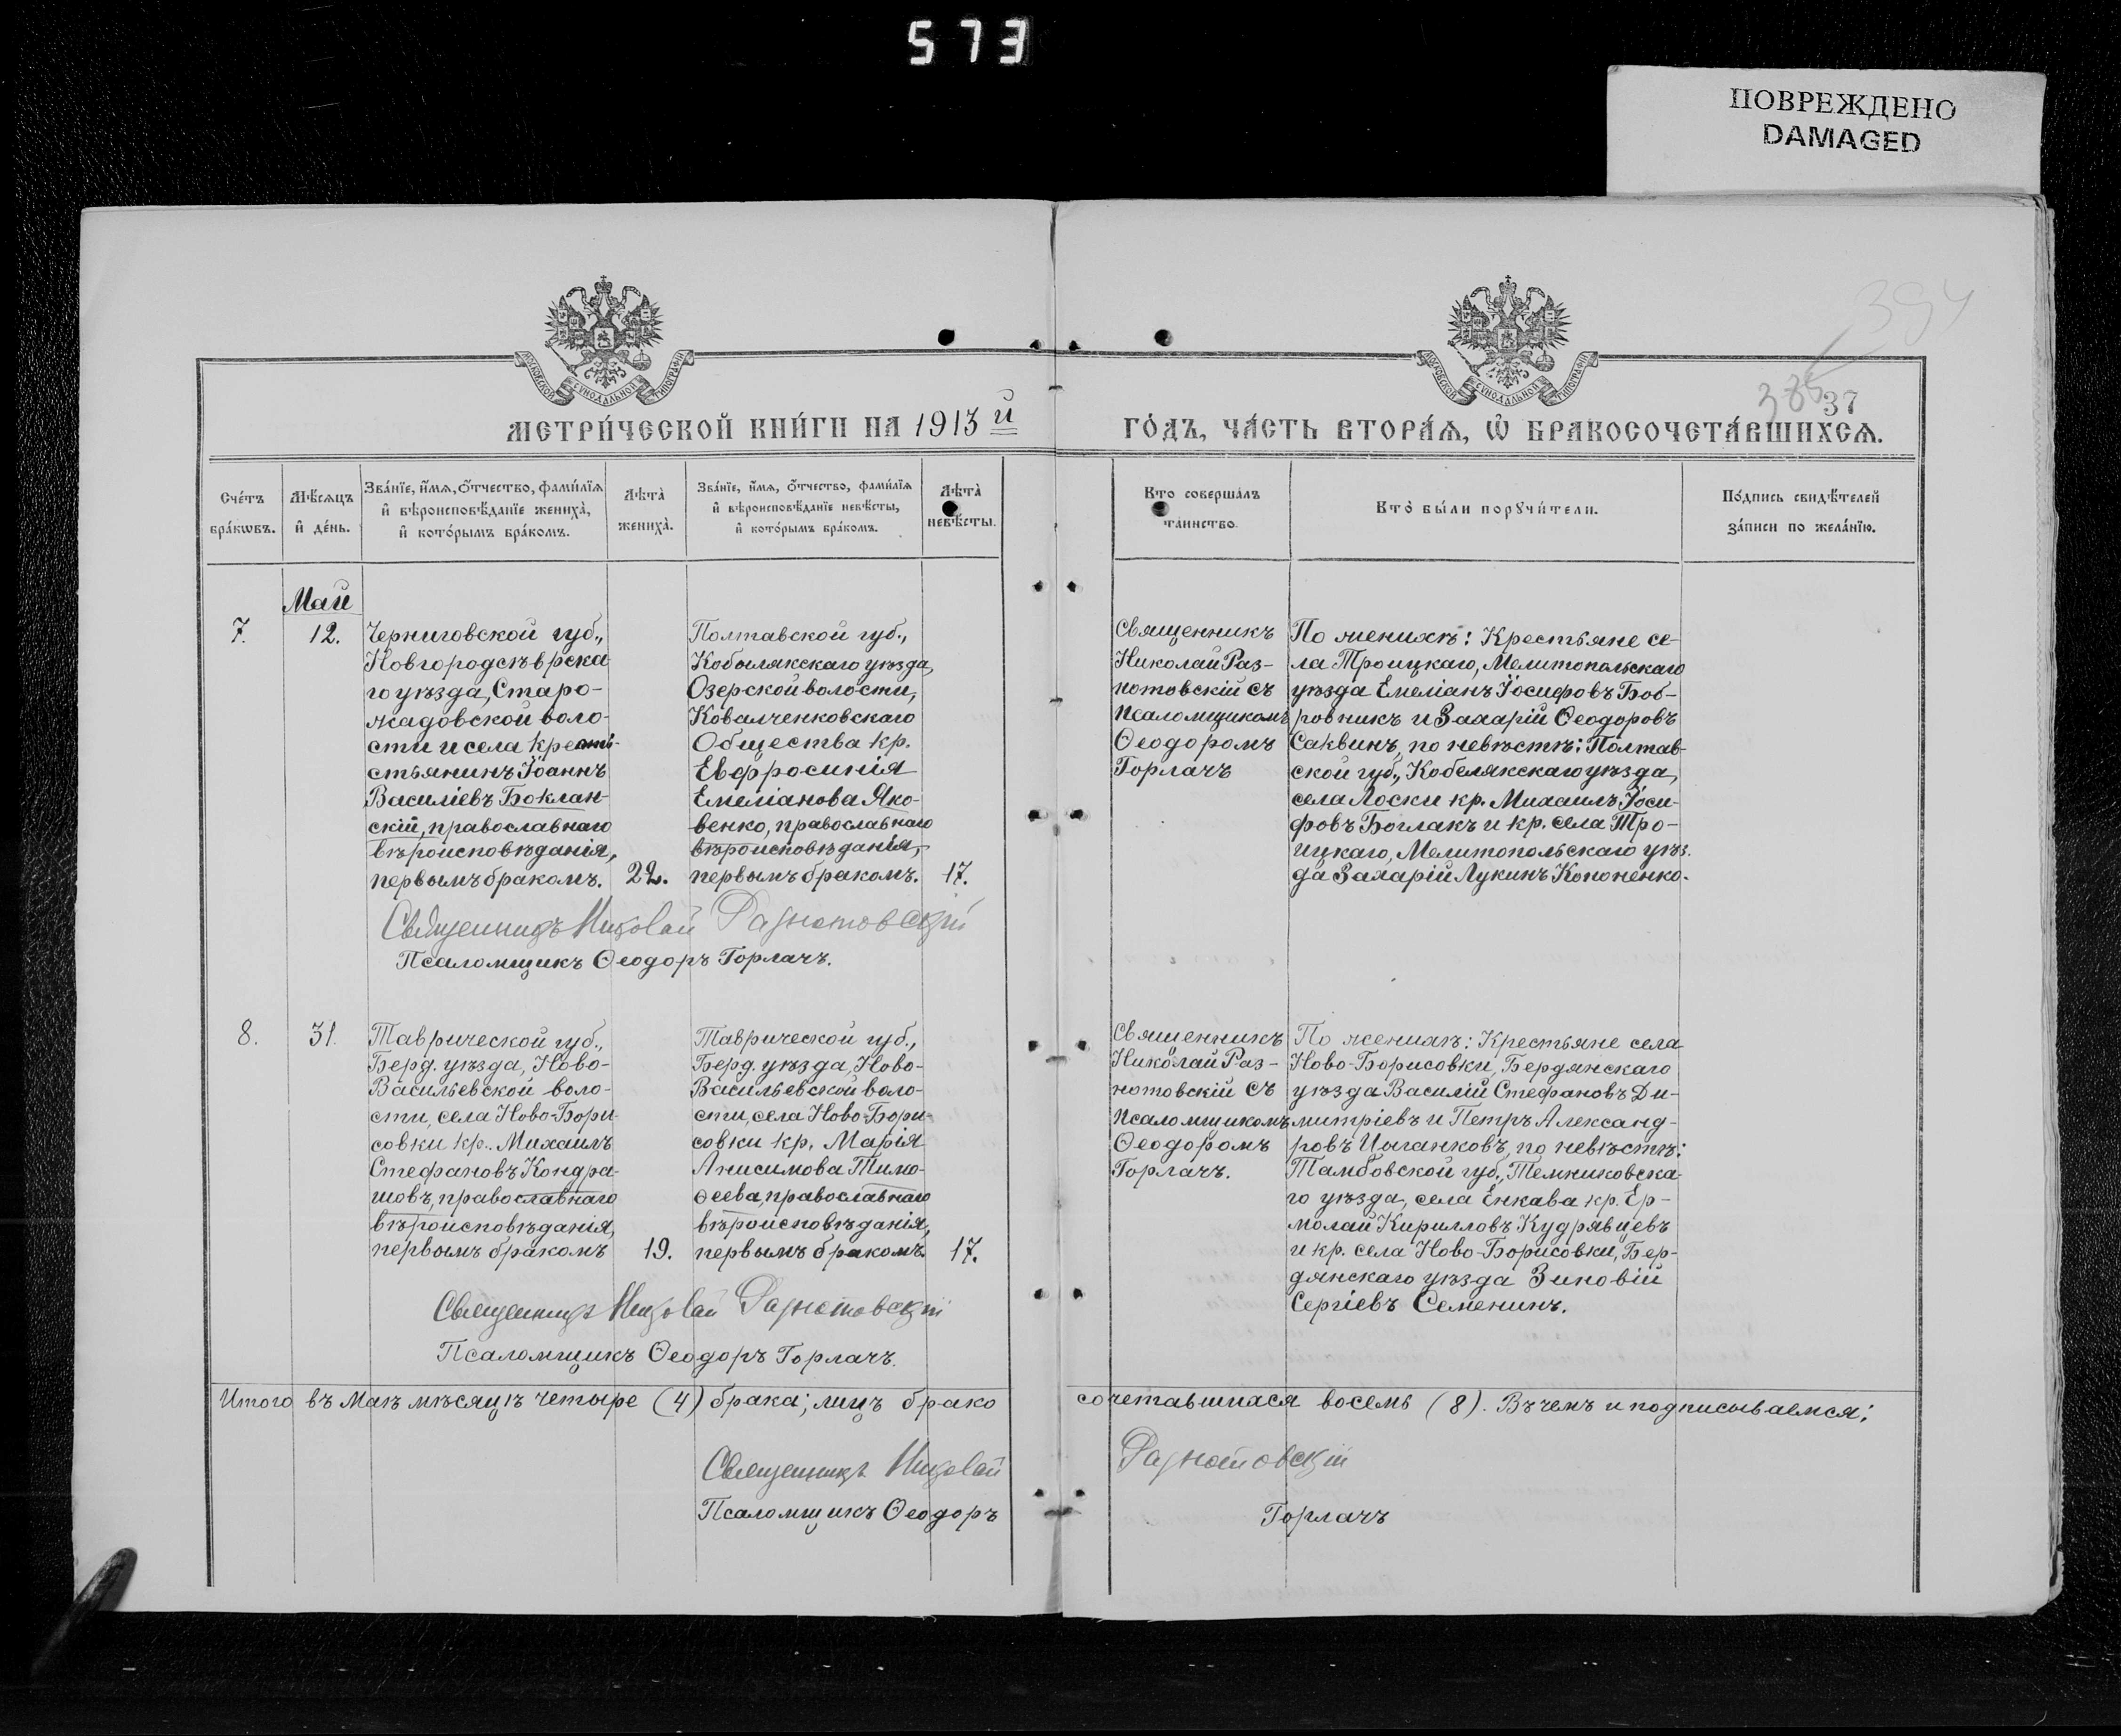 573
ПОВРЕЖДЕНО
DAMAGED
МОСКОВСКОЙ СѴНОДАЛЬНОЙ ТИПОГРАФІИ
МОСКОВСКОЙ СѴНОДАЛЬНОЙ ТИПОГРАФІИ
394
385
37
МЕТРИ́ЧЕСКОЙ КНИ́ГИ НА 1913 й
ГО́ДЪ, ЧА́СТЬ ВТОРА́Ѧ, Ѽ БРАКОСОЧЕТА́ВШИХСѦ.
Сче́тъ
бра́кѡвъ.
Мѣ́сѧцъ
и҆ де́нь.
Зва́нїе, и҆́мѧ, ѻ҆́тчество, фами́лїѧ
и҆ вѣроисповѣ́данїе жениха̀,
и҆ кото́рымъ бра́комъ.
Лѣта̀
жениха̀.
Зва́нїе, и҆́мѧ, ѻ҆́тчество, фами́лїѧ
и҆ вѣроисповѣ́данїе невѣ́сты,
и҆ кото́рымъ бра́комъ.
Лѣта̀
невѣ́сты.
Кто̀ соверша́лъ
та́инство.
Кто̀ бы́ли порꙋчи́тели.
По́дпись свидѣ́телей
за́писи по жела́нїю.
Май
7.
12.
Черниговской губ.,
Новгородсѣврска
го уѣзда, Старо-
жадовской воло-
сти и села кре
стьянинъ Іоаннъ
Василіевъ Боклан-
скій, православнаго
вѣроисповѣданія,
первымъ бракомъ.
22.
Полтавской губ.,
Кобылякскаго уѣзда,
Озерской волости,
Ковалченковскаго
Общества кр.
Евфросинія
Емеліанова Яко-
венко, православнаго
вѣроисповѣданія,
первымъ бракомъ.
17.
Священникъ
Николай Раз-
нотовскій съ
псаломщикомъ
Ѳеодоромъ
Горлачъ
По женихѣ: Крестьяне се-
ла Троицкаго, Мелитопольскаго
уѣзда Емеліанъ Іосифовъ Боб-
ровникъ и Захарій Ѳеодоровъ
Саквинъ, по невѣстѣ: Полтав-
ской губ., Кобелякскаго уѣзда,
села Лоски кр. Михаилъ Іоси-
фовъ Боглакъ и кр. села Тро-
ицкаго, Мелитопольскаго уѣз.
да Захарій Лукинъ Кононенко.
Священникъ Николай Разнотовскій
Псаломщикъ Ѳеодоръ Горлачъ.
8.
31.
Таврической губ.,
Берд. уѣзда, Ново-
Васильевской воло-
сти, села Ново-Бори-
совки кр. Михаилъ
Стефановъ Кондра-
шовъ, православнаго
вѣроисповѣданія,
первымъ бракомъ
19.
Таврической губ.,
Берд. уѣзда, Ново-
Васильевской воло-
сти, села Ново-Бори-
совки кр. Марія
Анисимова Тимо-
ѳеева, православнаго
вѣроисповѣданія,
первымъ бракомъ.
17.
Священникъ
Николай Раз-
нотовскій съ
псаломщикомъ
Ѳеодоромъ
Горлачъ.
По женихѣ: Крестьяне села
Ново-Борисовки, Бердянскаго
уѣзда Василій Стефановъ Ди-
митріевъ и Петръ Александ-
ровъ Цыганковъ, по невѣстѣ:
Тамбовской губ., Темниковска-
го уѣзда, села Енкава кр. Ер-
молай Кирилловъ Кудрявцевъ
и кр. села Ново-Борисовки, Бер-
дянскаго уѣзда Зиновій
Сергіевъ Семенинъ.
Священникъ Николай Разнотовскій
Псаломщикъ Ѳеодоръ Горлачъ.
Итого въ Маѣ мѣсяцѣ четыре (4) брака; лицъ брако сочетавшихся восемь (8). Въ чемъ и подписываемся:
Священникъ Николай Разнотовскій
Псаломщикъ Ѳеодоръ Горлачъ